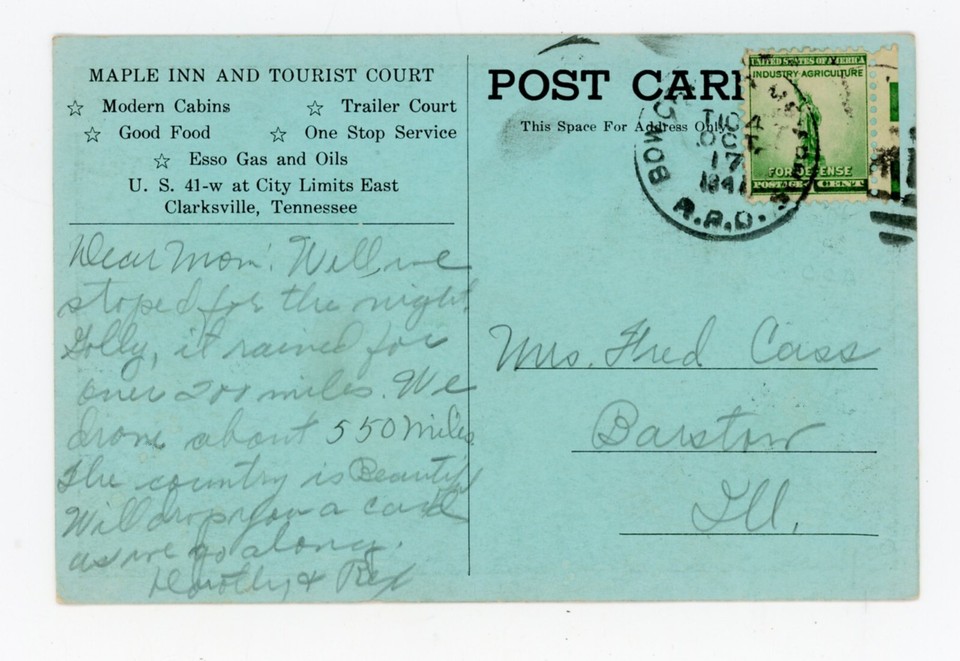 MAPLE INN AND TOURIST COURT
☆ Modern Cabins ☆ Trailer Court
☆ Good Food ☆ One Stop Service
☆ Esso Gas and Oils
U. S. 41-w at City Limits East
Clarksville, Tennessee
Dear Mom: Well, we
stoped for the night
Golly, it rained for
over 200 miles. We
drove about 550 miles
The country is Beautiful
Will drop you a card
as we go along.
Dorothy & Rex
POST CARD
This Space For Address Only
OCT
17
1941
R.P.O.
UNITED STATES OF AMERICA
INDUSTRY AGRICULTURE
FOR DEFENSE
POSTAGE 1 CENT
Mrs. Fred Cass
Barstow
Ill.